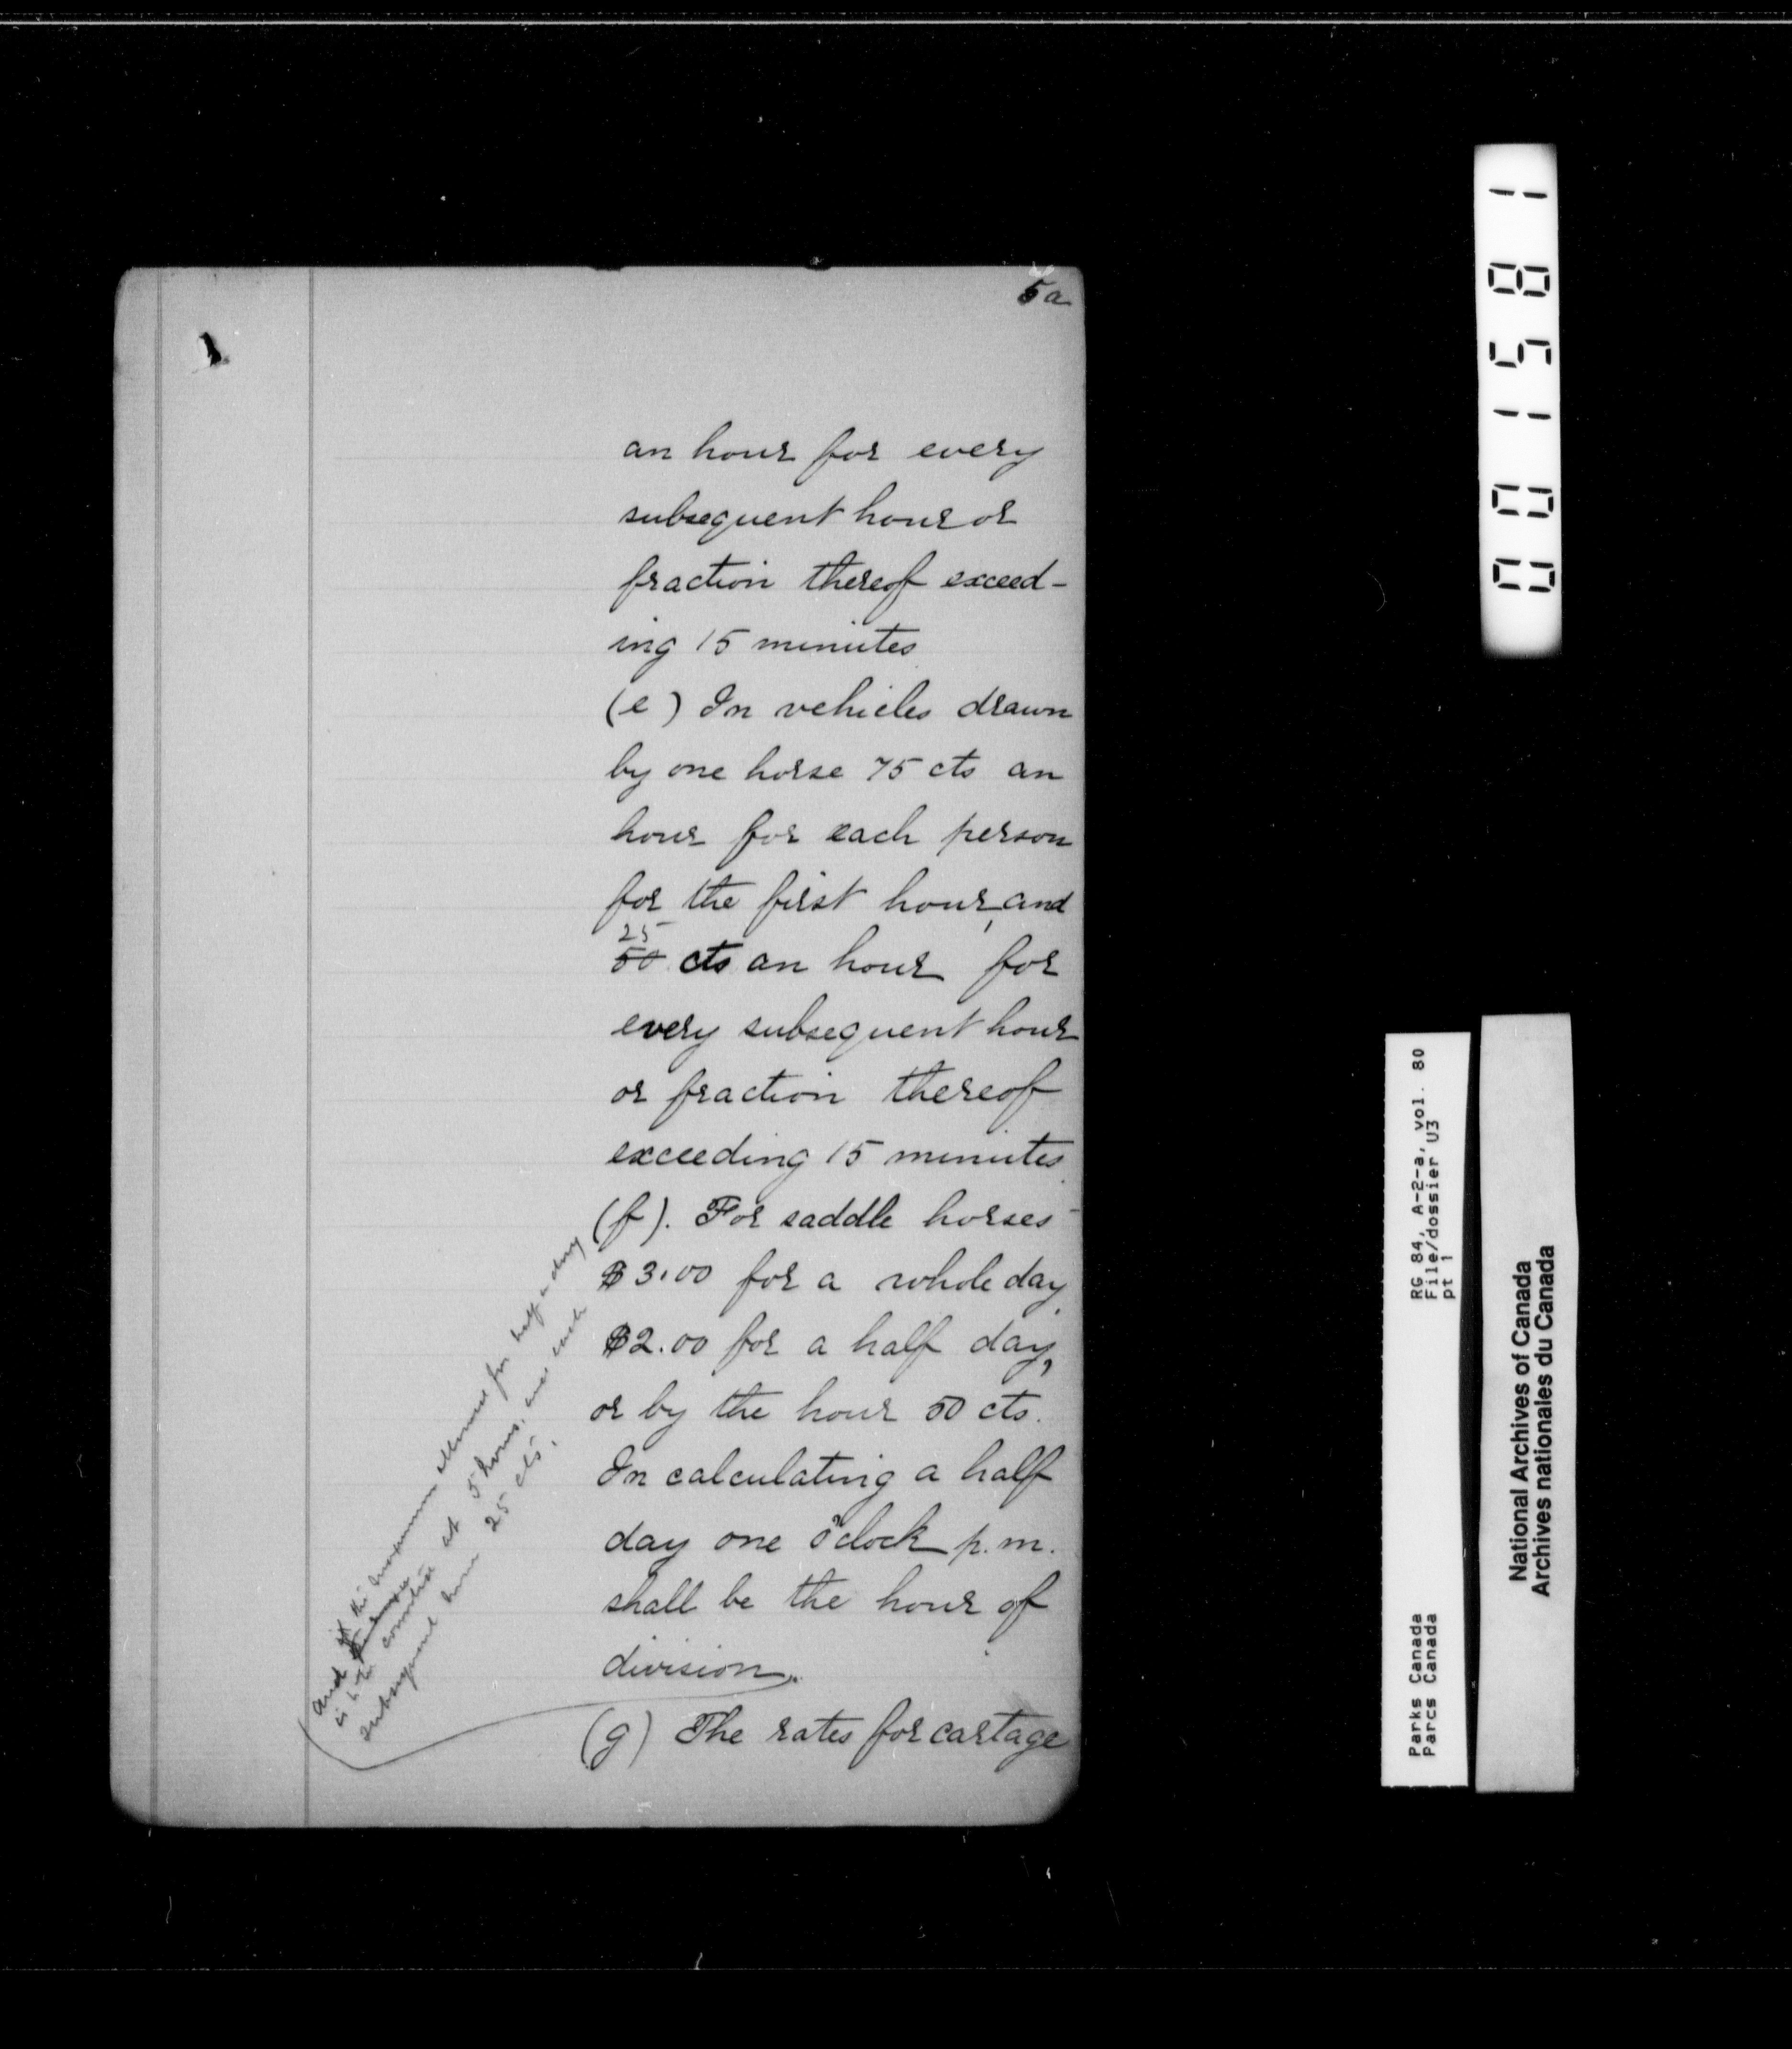 5a
an hour for every
subsequent hour or
fraction thereof exceed-
ing 15 minutes
(e) In vehicles drawn
by one horse 75 cts an
hour for each person
for the first hour, and
25
50 cts an hour for
every subsequent hour
or fraction thereof
exceeding 15 minutes
(f). For saddle horses -
$3.00 for a whole day
$2.00 for a half day,
or by the hour 50 cts.
In calculating a half
day one o'clock p.m.
shall be the hour of
division.
(g) The rates for cartage
and the maximum for half a day
is to be at 5 hours, and each
subsequent hour 25 cts.
001581
RG 84, A-2-a, vol. 80
File/dossier U3
pt 1
Parks Canada
Parcs Canada
National Archives of Canada
Archives nationales du Canada